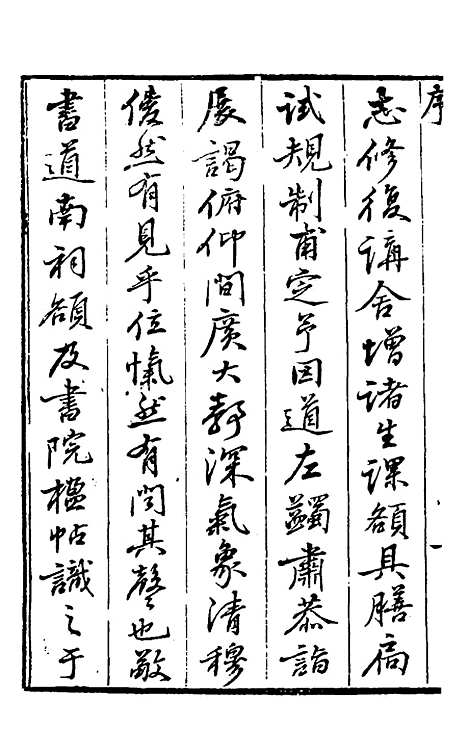 序
志修復講舍增諸生課額具膳高
試規制甫定予因道左蠲肅恭詣
展謁俯仰間廣大靜深氣象清穆
僾然有見乎位愾然有聞其聲也敬
書道南祠額及書院楹帖識之于
一